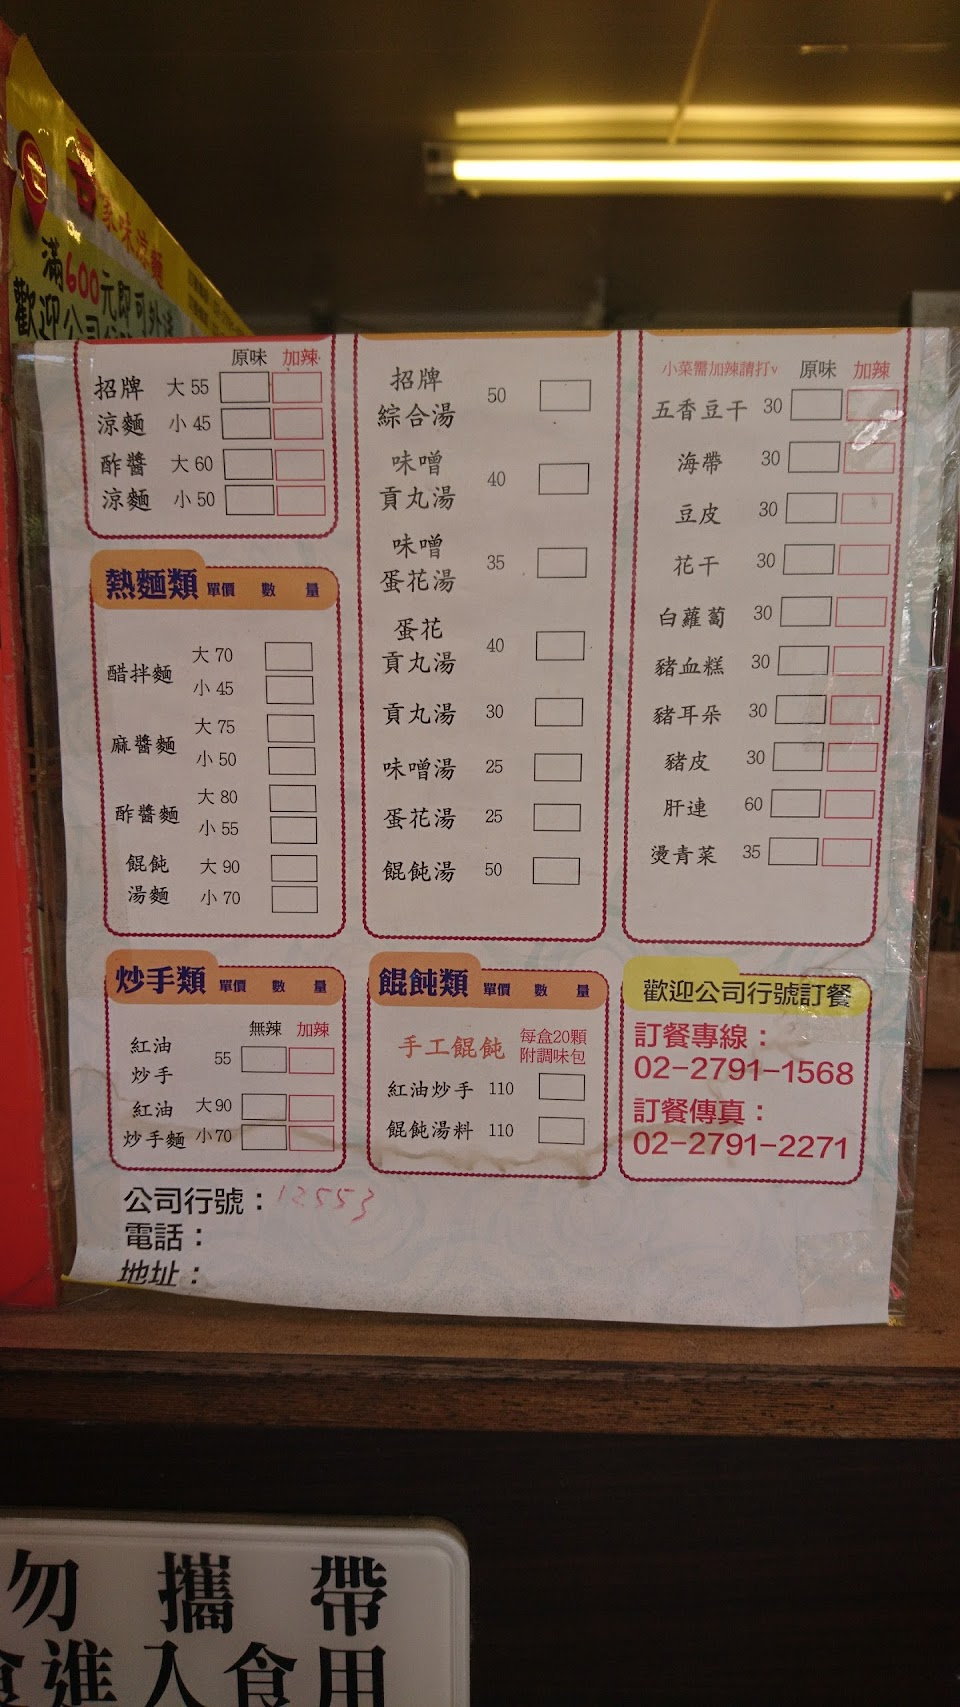 吾家味涼麵
滿600元即可外送
歡迎公司
原味 加辣
招牌 大 55
涼麵 小 45
酢醬 大 60
涼麵 小 50
熱麵類 單價 數 量
醋拌麵 大 70
小 45
麻醬麵 大 75
小 50
酢醬麵 大 80
小 55
餛飩 大 90
湯麵 小 70
炒手類 單價 數 量
無辣 加辣
紅油
炒手 55
紅油 大 90
炒手麵 小 70
招牌
綜合湯 50
味噌
貢丸湯 40
味噌
蛋花湯 35
蛋花
貢丸湯 40
貢丸湯 30
味噌湯 25
蛋花湯 25
餛飩湯 50
餛飩類 單價 數 量
手工餛飩 每盒20顆
附調味包
紅油炒手 110
餛飩湯料 110
小菜需加辣請打v 原味 加辣
五香豆干 30
海帶 30
豆皮 30
花干 30
白蘿蔔 30
豬血糕 30
豬耳朵 30
豬皮 30
肝連 60
燙青菜 35
歡迎公司行號訂餐
訂餐專線：
02-2791-1568
訂餐傳真：
02-2791-2271
公司行號：12553
電話：
地址：
勿攜帶
食進入食用